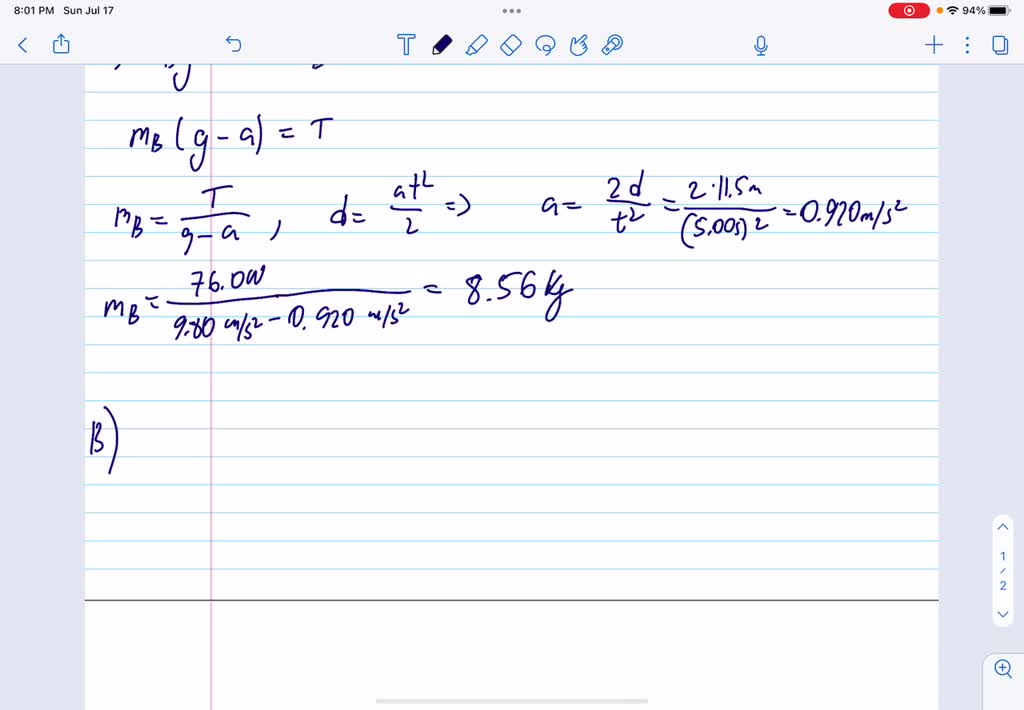 8:01 PM Sun Jul 17 94%
m_B (g - a) = T
m_B = T / (g - a) , d = at² / 2 => a = 2d / t² = 2·11.5m / (5.00s)² = 0.920 m/s²
m_B = 76.0N / (9.80 m/s² - 0.920 m/s²) = 8.56 kg
B)
1
/
2